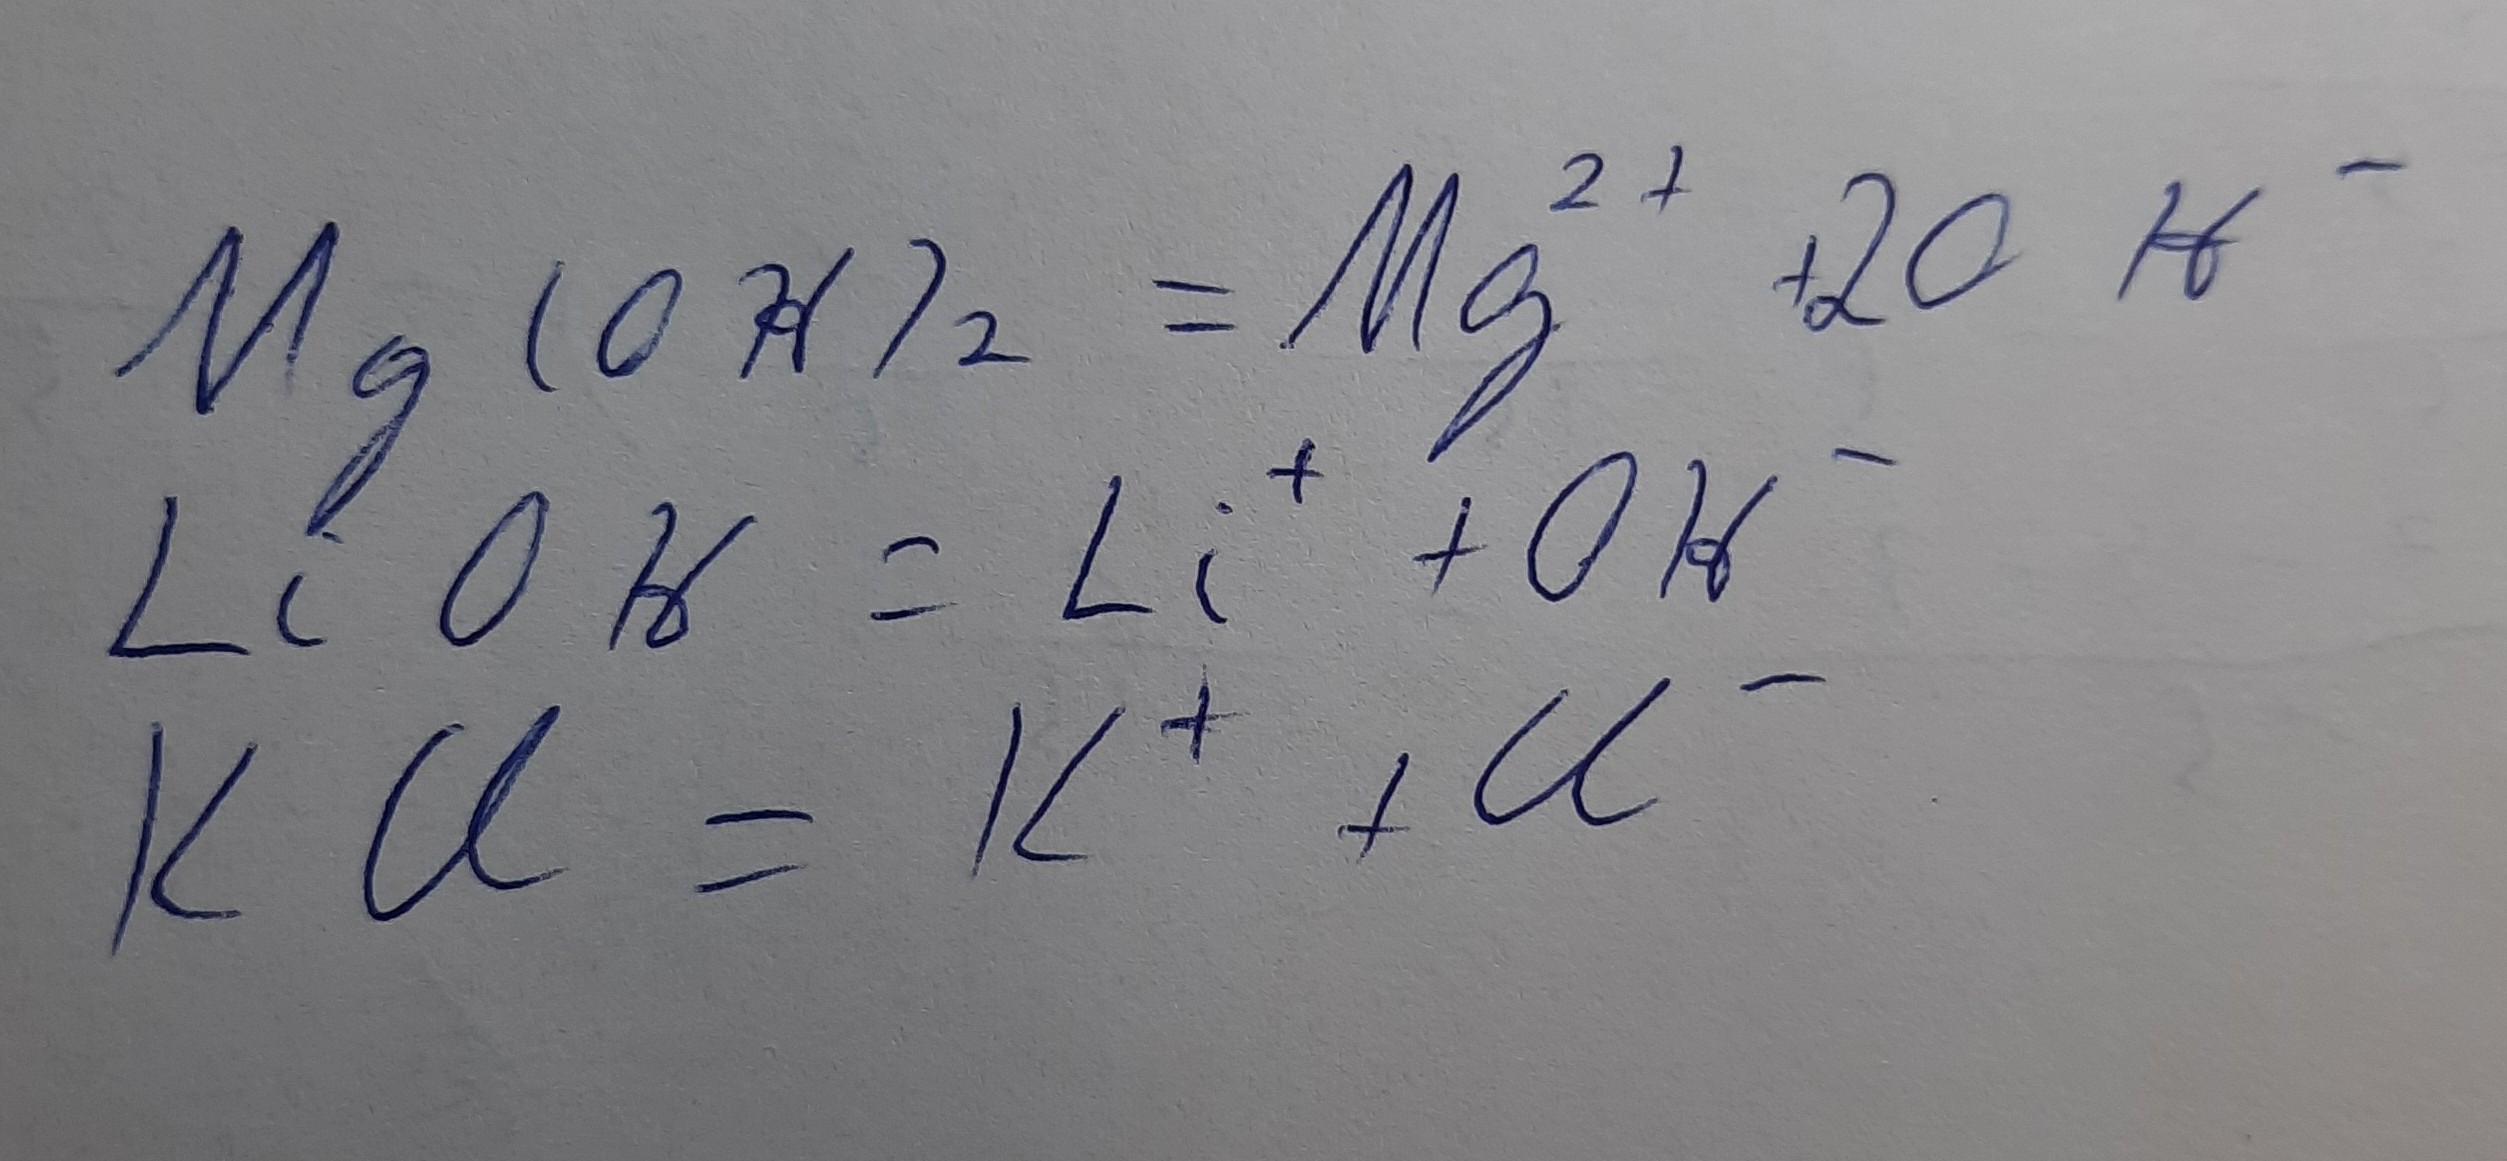 Mg(OH)₂ = Mg²⁺ + 2OH⁻
LiOH = Li⁺ + OH⁻
KCl = K⁺ + Cl⁻